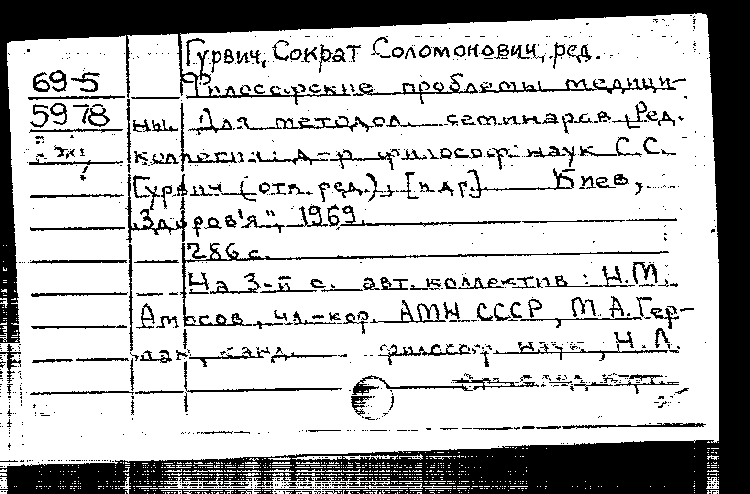 Гурвич, Сократ Соломонович, ред.
69-5
Философские проблемы медици-
5978
ны. Для методол. семинаров. [Ред.
коллегия: д-р философ. наук С.С.
Гурвич (отв. ред.), [и др.] Киев,
"Здоров'я", 1969.
286 с.
На 3-й с. авт. коллектив: Н.М.
Амосов, чл.-кор. АМН СССР, М.А. Гер-
ман, канд. философ. наук, Н.Л.
См. след. карт.